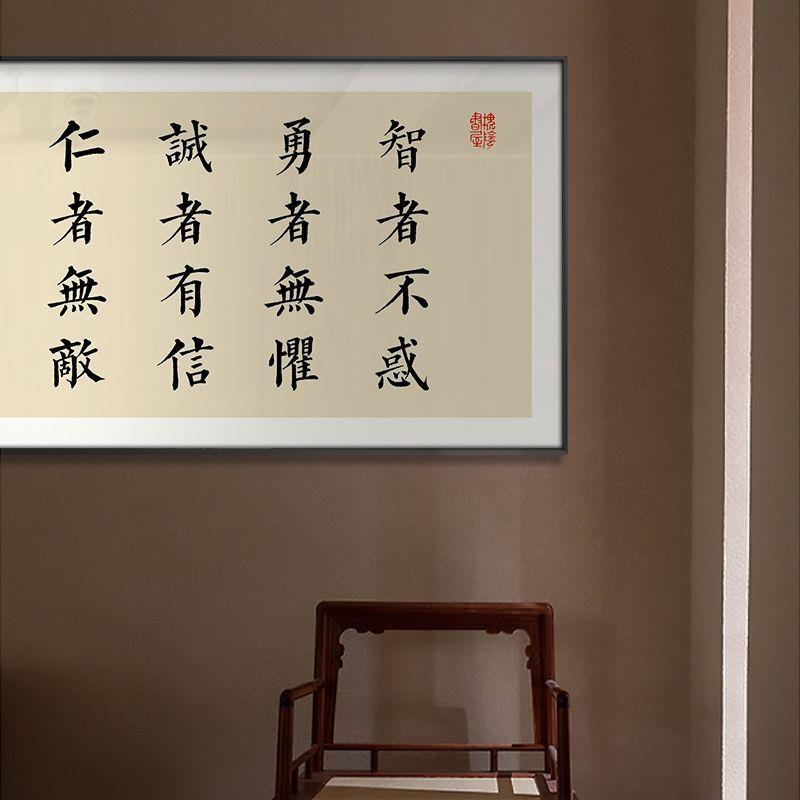 智者不惑
勇者無懼
誠者有信
仁者無敵